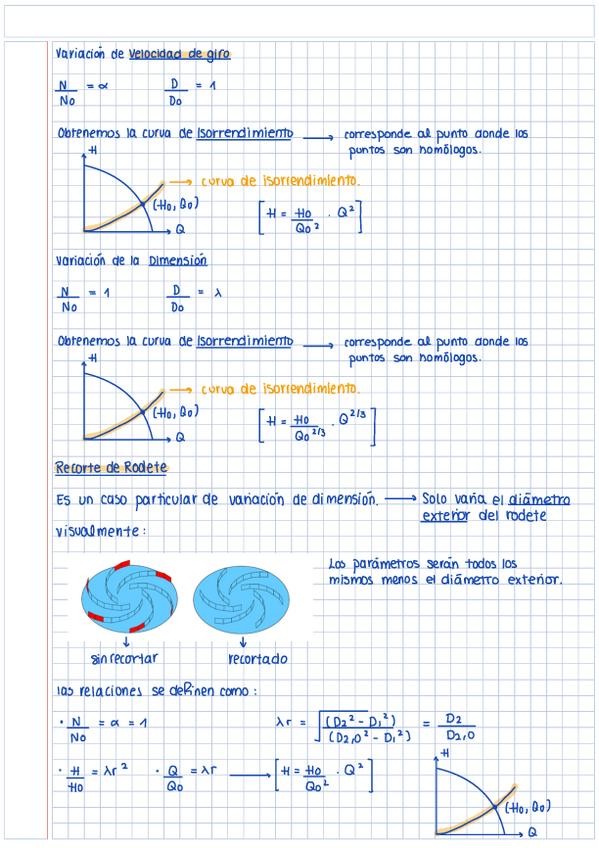 Variación de Velocidad de giro
N/No = α    D/Do = 1
Obtenemos la curva de Isorrendimiento → corresponde al punto donde los
puntos son homólogos.
H
→ curva de isorrendimiento.
(Ho, Qo)    [H = Ho/Qo² · Q²]
Q
Variación de la Dimensión
N/No = 1    D/Do = λ
Obtenemos la curva de Isorrendimiento → corresponde al punto donde los
puntos son homólogos.
H
→ curva de isorrendimiento.
(Ho, Qo)    [H = Ho/Qo^2/3 · Q^2/3]
Q
Recorte de Rodete
Es un caso particular de variación de dimensión. → Solo varía el diámetro
exterior del rodete
visualmente:
Los parámetros serán todos los
mismos menos el diámetro exterior.
sin recortar    recortado
las relaciones se definen como:
· N/No = α = 1    λr = √(D2² - D1²)/(D2,0² - D1²) = D2/D2,0
· H/Ho = λr²    · Q/Qo = λr → [H = Ho/Qo² · Q²]
H
(Ho, Qo)
Q